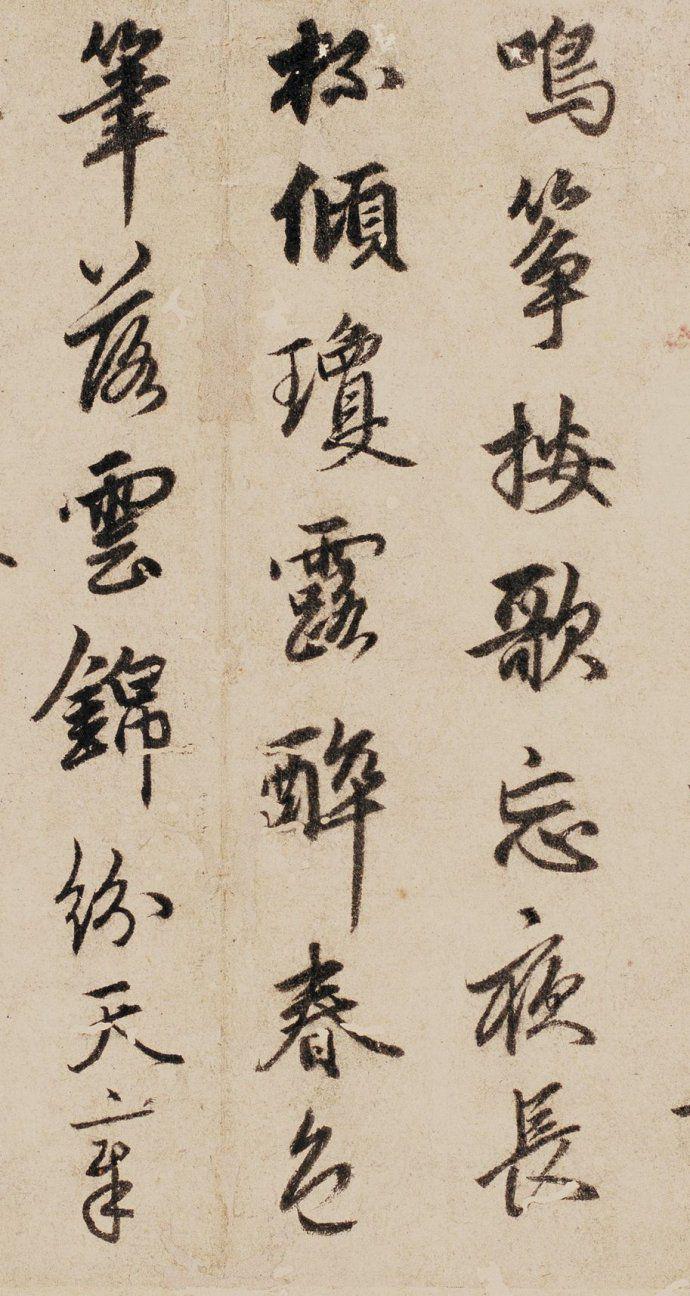 鳴箏按歌忘夜長
杯傾瓊露醉春色
筆落雲錦紛天章